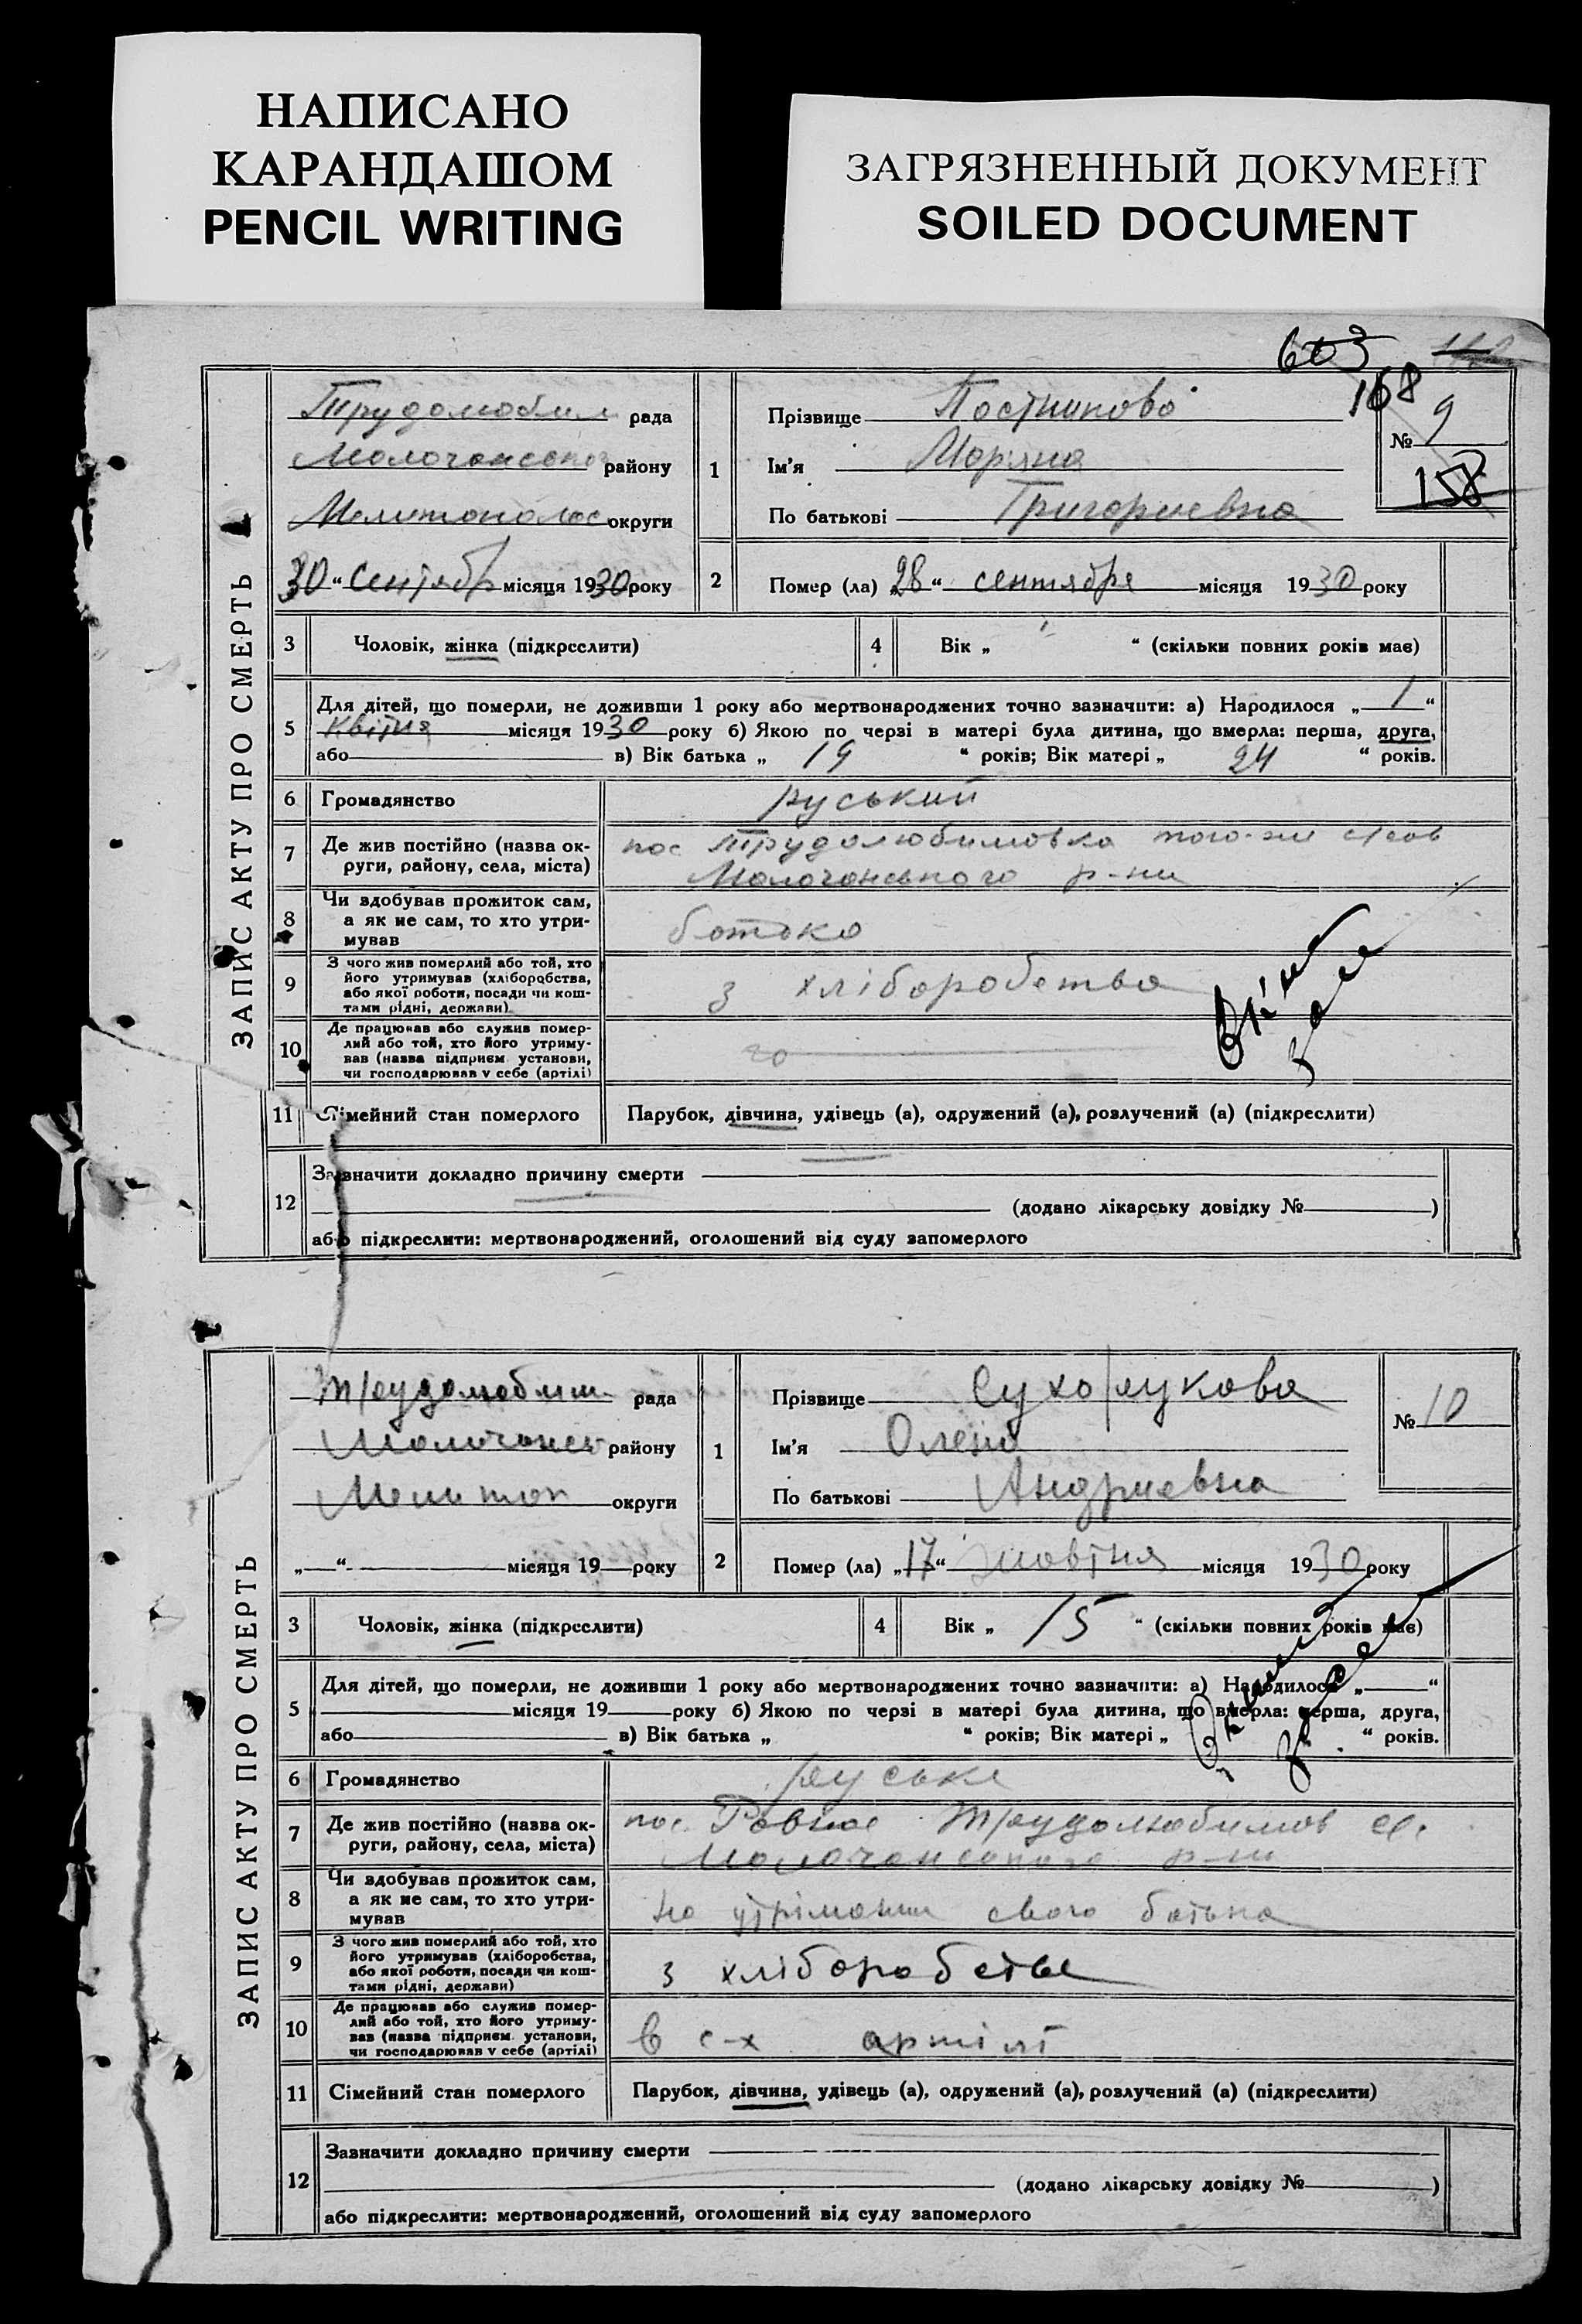 НАПИСАНО
КАРАНДАШОМ
PENCIL WRITING
ЗАГРЯЗНЕННЫЙ ДОКУМЕНТ
SOILED DOCUMENT
603
168
ЗАПИС АКТУ ПРО СМЕРТЬ
Трудолюбим рада
Молочанського району
Мелитопольс округи
30 “ Сентябр місяця 1930 року
1
Прізвище Постникова
Ім’я Маряна
По батькові Григориевна
№ 9
158
2 Помер (ла) 28 “ сентября місяця 1930 року
3 Чоловік, жінка (підкреслити)
4 Вік „ “ (скільки повних років має)
5 Для дітей, що померли, не доживши 1 року або мертвонароджених точно зазначити: а) Народилося „ 1 “
Квітня місяця 1930 року б) Якою по черзі в матері була дитина, що вмерла: перша, друга,
або в) Вік батька „ 19 “ років; Вік матері „ 24 “ років.
6 Громадянство руський
7 Де жив постійно (назва ок-
руги, району, села, міста)
пос Трудолюбимовка того-же
Молочанського р-ни
8 Чи здобував прожиток сам,
а як не сам, то хто утри-
мував
батько
9 З чого жив померлий або той, хто
його утримував (хліборобства,
або якої роботи, посади чи кош-
тами рідні, держави)
з хліборобства
10 Де працював або служив помер-
лий або той, хто його утриму-
вав (назва підприєм. установи,
чи господарював у себе (артілі)
11 Сімейний стан померлого Парубок, дівчина, удівець (а), одружений (а), розлучений (а) (підкреслити)
12 Зазначити докладно причину смерти
(додано лікарську довідку № )
або підкреслити: мертвонароджений, оголошений від суду запомерлого
ЗАПИС АКТУ ПРО СМЕРТЬ
Трудолюбим рада
Молочансь району
Мелитоп округи
„ “ місяця 19 року
1
Прізвище Сухорукова
Ім’я Олена
По батькові Андриевна
№ 10
2 Помер (ла) „17“ жовтня місяця 1930 року
3 Чоловік, жінка (підкреслити)
4 Вік „ 15 “ (скільки повних років має)
5 Для дітей, що померли, не доживши 1 року або мертвонароджених точно зазначити: а) Народилося „ “
місяця 19 року б) Якою по черзі в матері була дитина, що вмерла: перша, друга,
або в) Вік батька „ “ років; Вік матері „ “ років.
6 Громадянство руська
7 Де жив постійно (назва ок-
руги, району, села, міста)
пос. Ровное Трудолюбимов с/с
Молочанського р-ни
8 Чи здобував прожиток сам,
а як не сам, то хто утри-
мував
на утримании свого батька
9 З чого жив померлий або той, хто
його утримував (хліборобства,
або якої роботи, посади чи кош-
тами рідні, держави)
з хліборобства
10 Де працював або служив помер-
лий або той, хто його утриму-
вав (назва підприєм. установи,
чи господарював у себе (артілі)
в с-х артілі
11 Сімейний стан померлого Парубок, дівчина, удівець (а), одружений (а), розлучений (а) (підкреслити)
12 Зазначити докладно причину смерти
(додано лікарську довідку № )
або підкреслити: мертвонароджений, оголошений від суду запомерлого